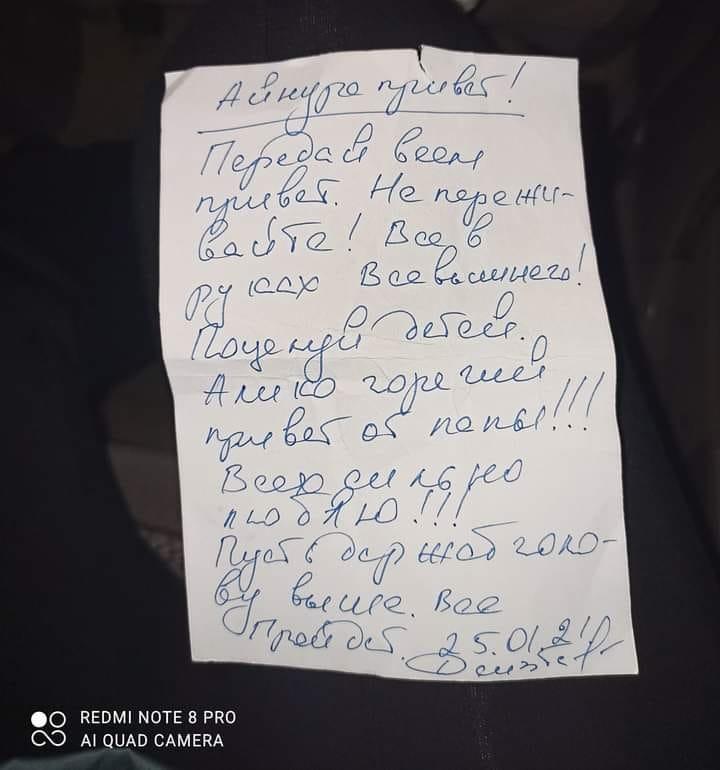 Айнура привет!
Передай всем
привет. Не пережи-
вайте! Все в
руках Всевышнего!
Поцелуй детей.
Алико горячий
привет от папы!!!
Всех сильно
люблю!!!
Пусть держат голо-
ву выше. Все
пройдет. 25.01.21
REDMI NOTE 8 PRO
AI QUAD CAMERA